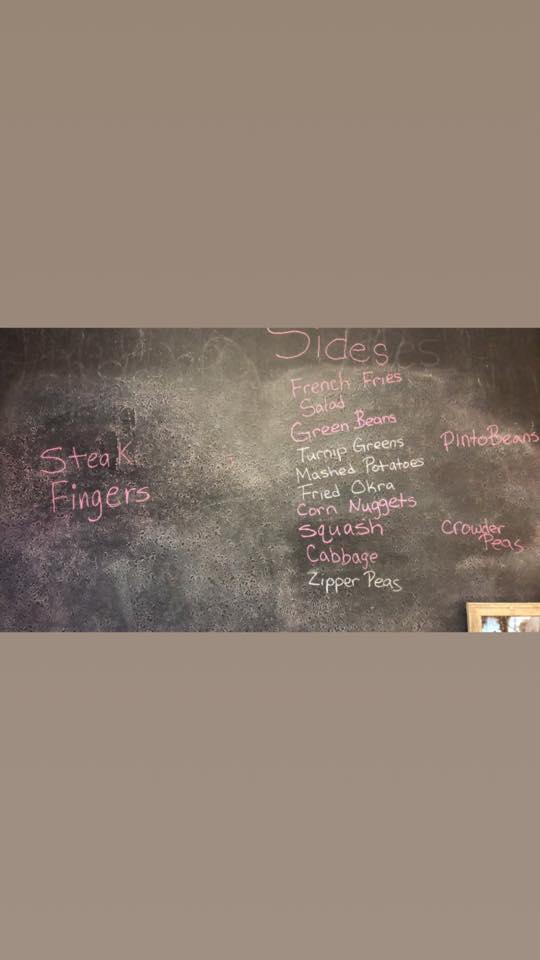 Sides
French Fries
Salad
Green Beans
Turnip Greens
Mashed Potatoes
Fried Okra
Corn Nuggets
Squash
Cabbage
Zipper Peas
Steak
Fingers
Pinto Beans
Crowder
Peas